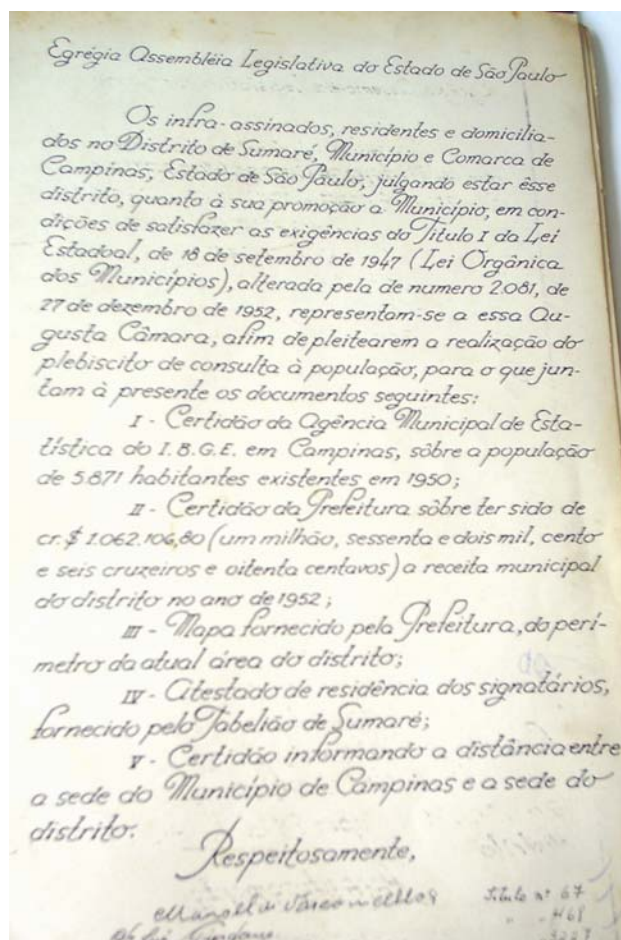 Egrégia Assembléia Legislativa do Estado de São Paulo
Os infra-assinados, residentes e domicilia-
dos no Distrito de Sumaré, Município e Comarca de
Campinas, Estado de São Paulo, julgando estar êsse
distrito, quanto à sua promoção a Município, em con-
dições de satisfazer as exigências do Título I da Lei
Estadoal, de 18 de setembro de 1947 (Lei Orgânica
dos Municípios), alterada pela de numero 2.081, de
27 de dezembro de 1952, representam-se a essa Au-
gusta Câmara, afim de pleitearem a realização do
plebiscito de consulta à população, para o que jun-
tam à presente os documentos seguintes:
I - Certidão da Agência Municipal de Esta-
tística do I.B.G.E. em Campinas, sôbre a população
de 5.871 habitantes existentes em 1950;
II - Certidão da Prefeitura sôbre ter sido de
cr.$ 1.062.106,80 (um milhão, sessenta e dois mil, cento
e seis cruzeiros e oitenta centavos) a receita municipal
do distrito no ano de 1952;
III - Mapa fornecido pela Prefeitura, do perí-
metro da atual área do distrito;
IV - Atestado de residência dos signatários,
fornecido pelo Tabelião de Sumaré;
V - Certidão informando a distância entre
a sede do Município de Campinas e a sede do
distrito.
Respeitosamente,
Vasconcellos Titulo nº 67